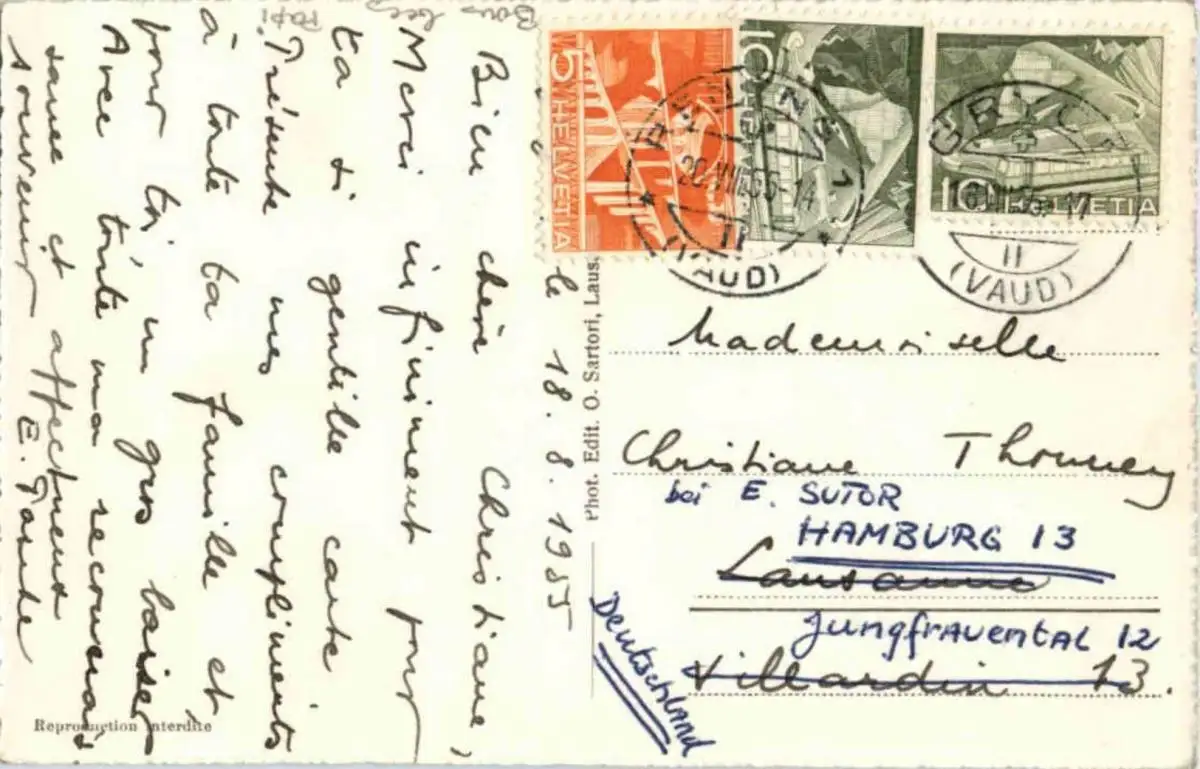 le 18.8.1955
Bien chère Christiane,
Merci infiniment pour
ta si gentille carte
Présente mes compliments
à toute ta famille et
pour toi, un gros baiser
Avec toute ma reconnais
sance et affectueux
souvenir
Papi
Phot. Edit. O. Sartori, Laus
Reproduction interdite
5 HELVETIA
10 HELVETIA
10 HELVETIA
RENENS 1
20.VIII.55-14
II
(VAUD)
17
II
(VAUD)
Mademoiselle
Christiane Thonney
bei E. SUTOR
HAMBURG 13
Lausanne
Jungfrauental 12
Villardin 13.
Deutschland